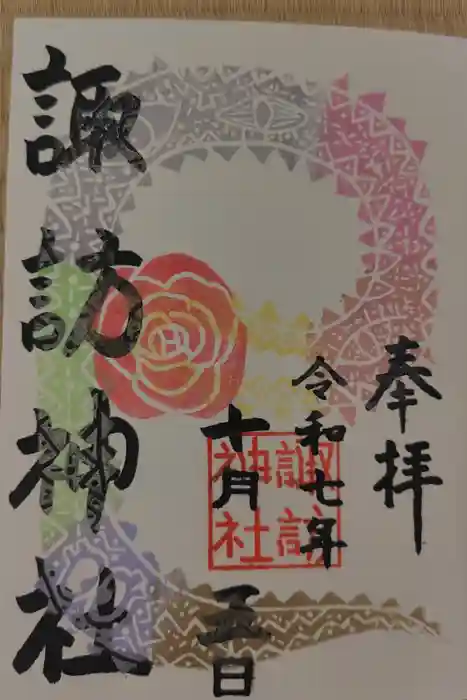 奉拝
令和七年
十月
五日
諏訪神社
諏訪
神社